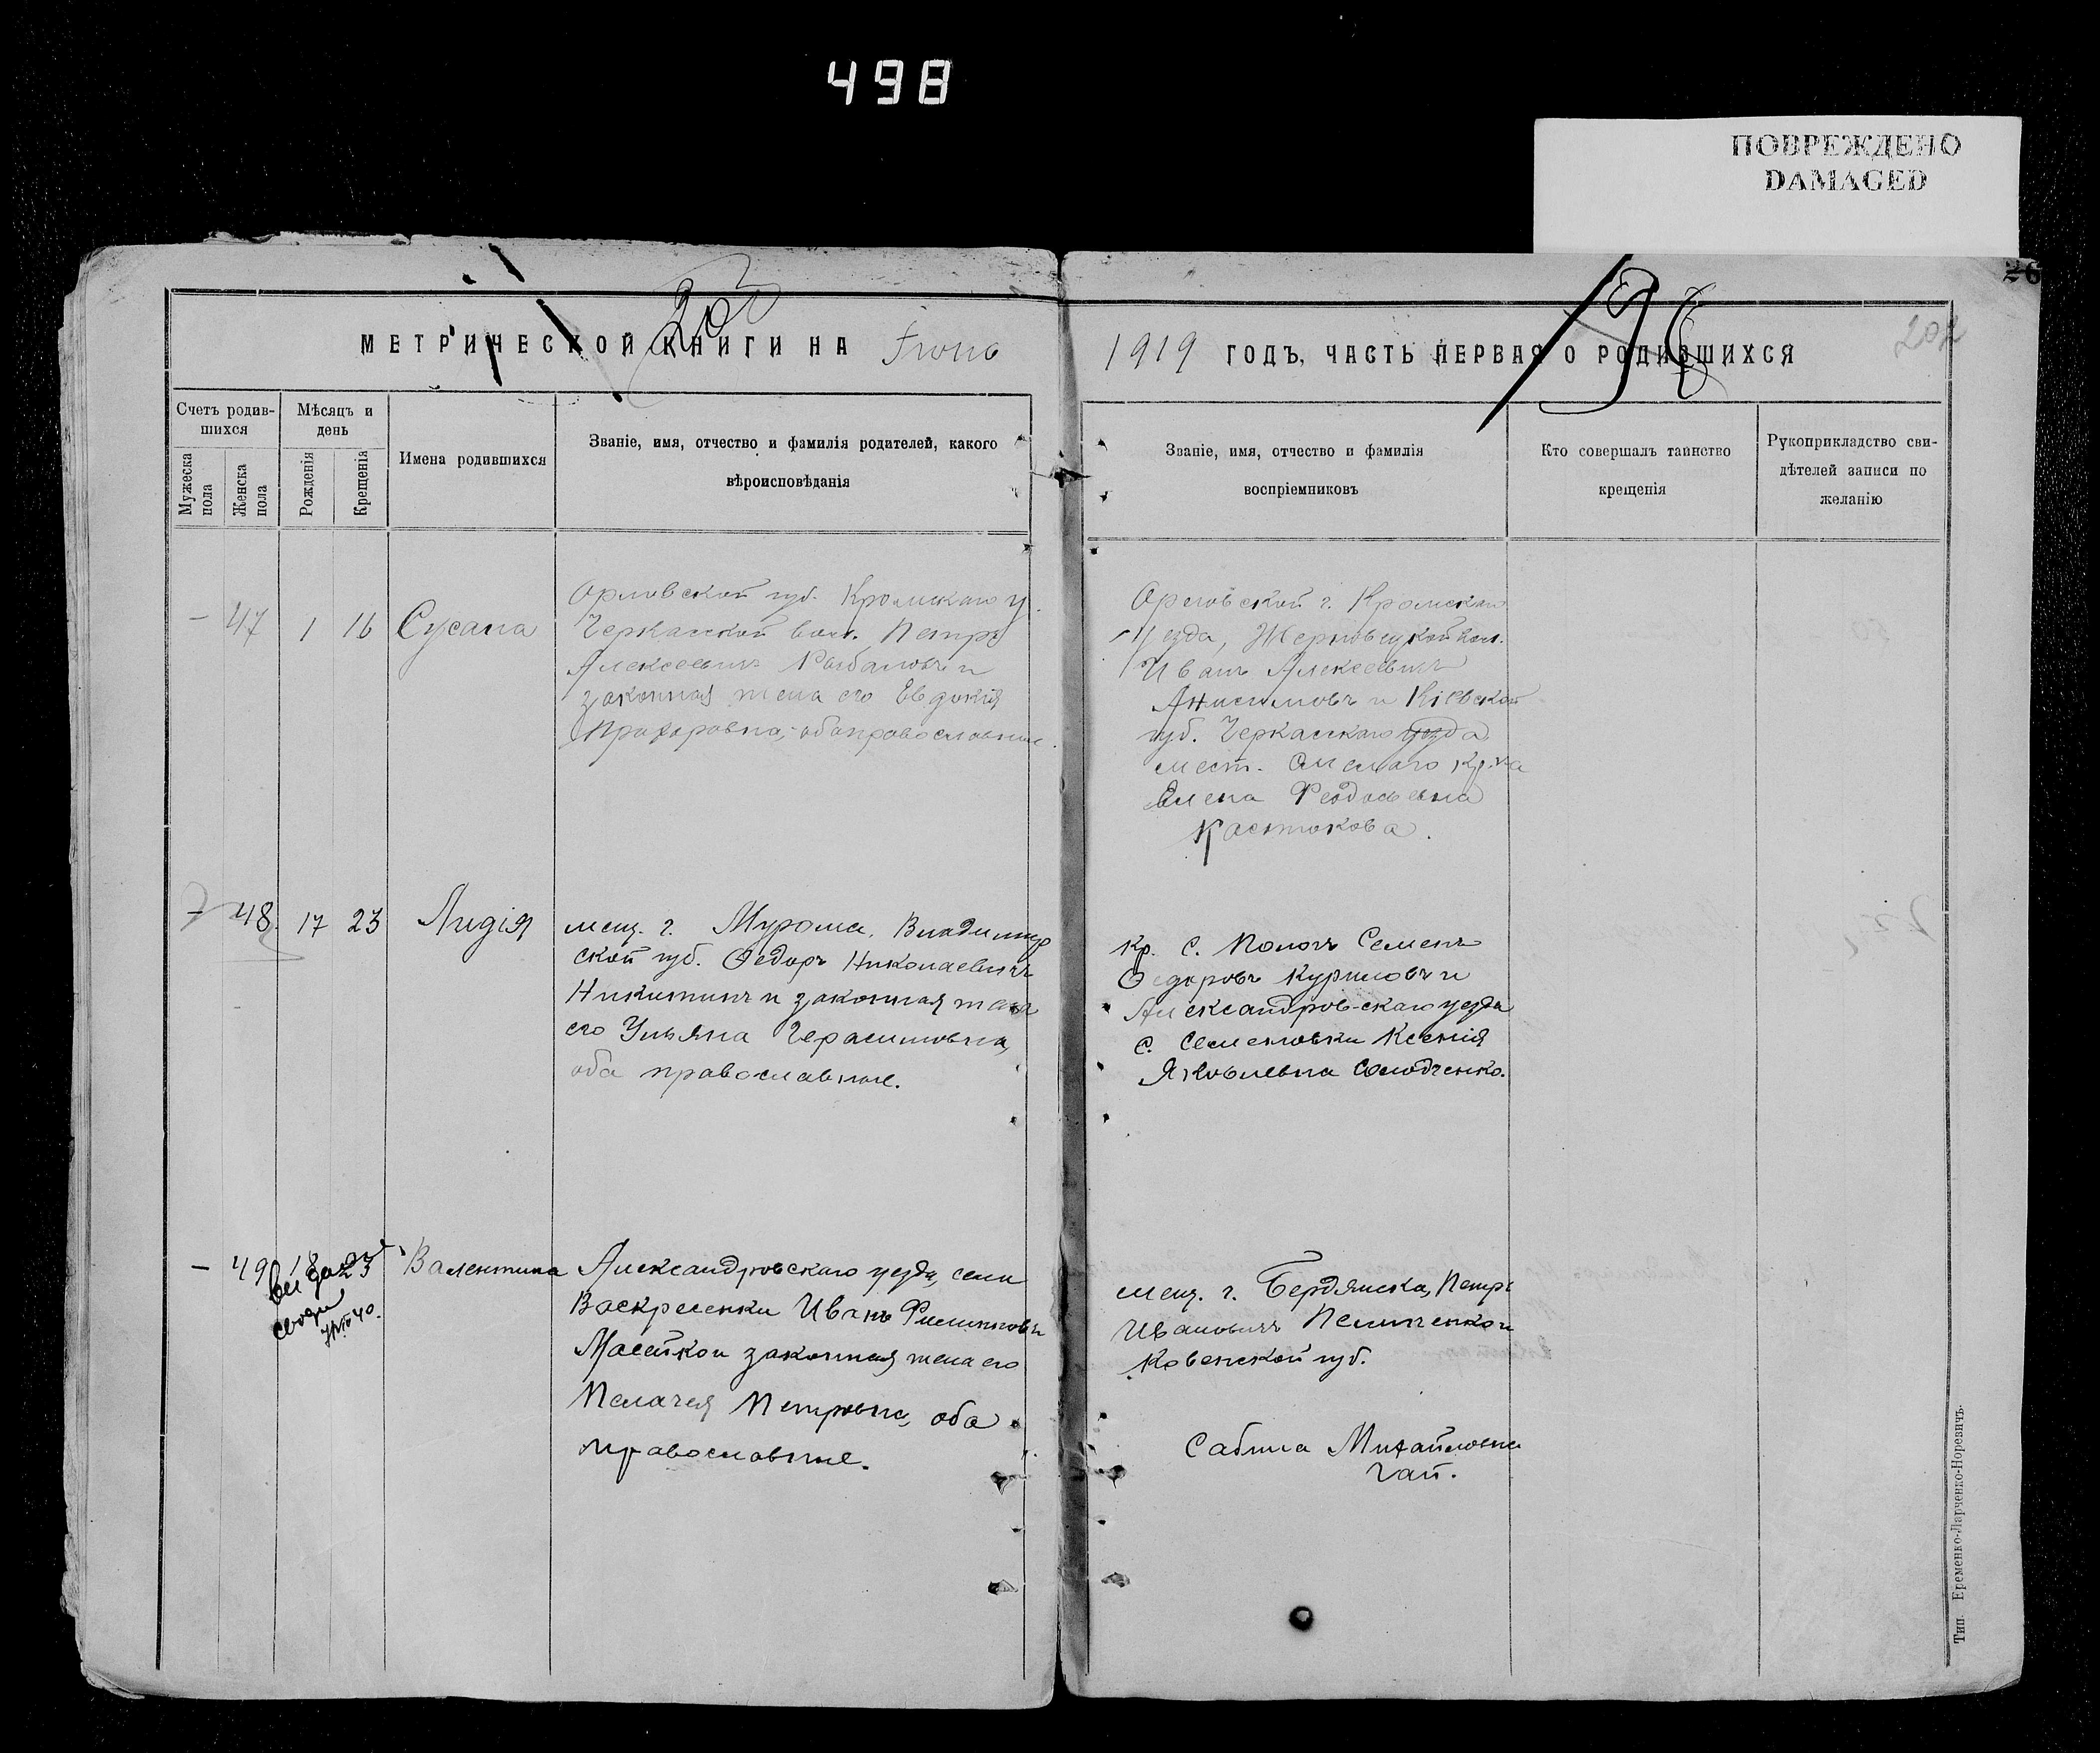 498
ПОВРЕЖДЕНО
DAMAGED
МЕТРИЧЕСКОЙ КНИГИ НА
1919 ГОДЪ, ЧАСТЬ ПЕРВАЯ О РОДИВШИХСЯ
202
Счетъ родив-
шихся
Мужеска
пола
Женска
пола
Мѣсяцъ и
день
Рожденія
Крещенія
Имена родившихся
Званіе, имя, отчество и фамилія родителей, какого
вѣроисповѣданія
Званіе, имя, отчество и фамилія
воспріемниковъ
Кто совершалъ таинство
крещенія
Рукоприкладство сви-
дѣтелей записи по
желанію
– 47 1 16 Сусана
Орловской губ. Кромскаго у.
Черкасской вол. Петръ
Алексеевичъ и
законная жена его Евдокія
Прохоровна, оба православные.
Орловской г. Кромскаго
уезда,
Иванъ Алексеевичъ
Анисимовъ и Кіевской
губ. Черкасскаго уезда
мест. Смелаго кр-ка
Елена Феодосьевна
Костюкова.
48 17 23 Лидія
мещ. г. Мурома, Владимир
ской губ. Ѳедоръ Николаевичъ
Никитинъ и законная жена
его Ульяна Герасимовна,
оба православные.
кр. с. Пологъ Семенъ
Ѳедоровъ Куриловъ и
Александровскаго уезда
с. Семеновки Ксенія
Яковлевна Солодченко.
– 49 18 23 Валентина
Александровскаго уезда, села
Воскресенки Иванъ Филипповъ
и законная жена его
Пелагея Петровна, оба
православные.
мещ. г. Бердянска, Петръ
Ивановичъ и
Ковенской губ.
Сабина Михайловна
Гай.
Тип. Еременко-Ларченко-Норевичъ.